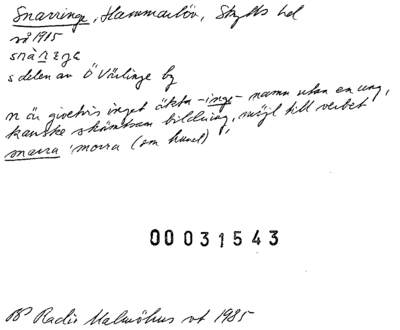 Snarringe, Hammarlöv, Skytts hd
vt 1915
snàṟeǥe
s delen av Ö Värlinge by
n är givetvis inget äkta -inge-namn utan en ung,
kanske skämtsam bildning, möjl till verbet
snarra 'morra (om hund)'
00031543
BP Radio Malmöhus vt 1985